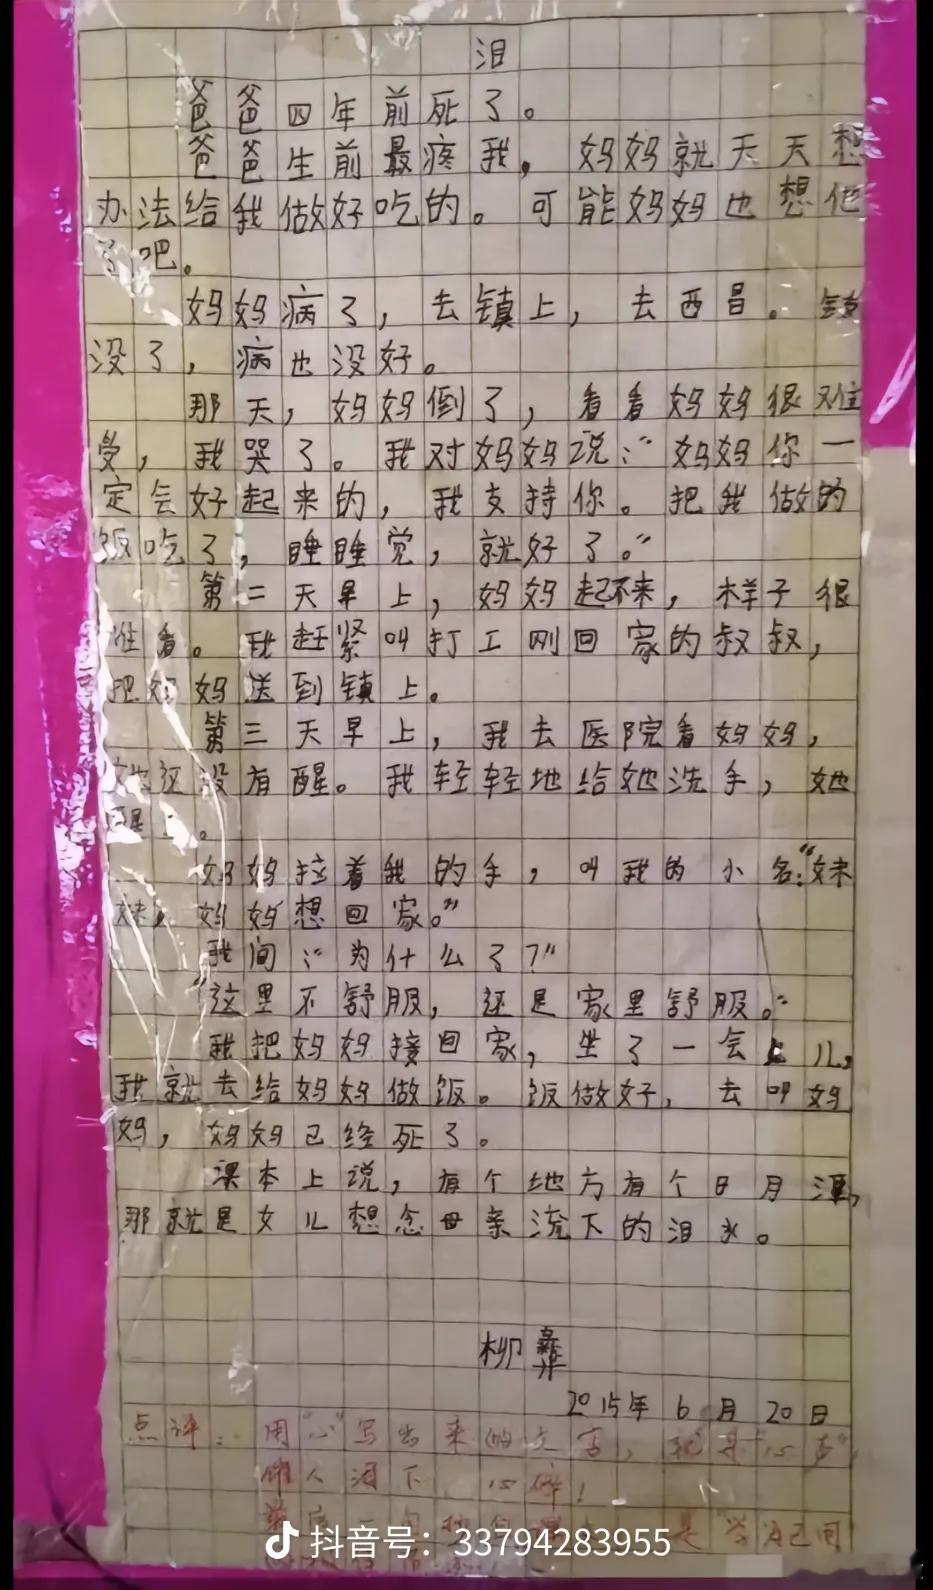 泪
爸爸四年前死了。
爸爸生前最疼我，妈妈就天天想
办法给我做好吃的。可能妈妈也想他
了吧。
妈妈病了，去镇上，去西昌。钱
没了，病也没好。
那天，妈妈倒了，看看妈妈很难
受，我哭了。我对妈妈说：“妈妈你一
定会好起来的，我支持你。把我做的
饭吃了，睡睡觉，就好了。”
第二天早上，妈妈起不来，样子很
难看。我赶紧叫打工刚回家的叔叔，
把妈妈送到镇上。
第三天早上，我去医院看妈妈，
她还没有醒。我轻轻地给她洗手，她
醒了。
妈妈拉着我的手，叫我的小名：“妹
妹，妈妈想回家。”
我问：“为什么了？”
“这里不舒服，还是家里舒服。”
我把妈妈接回家，坐了一会儿，
我就去给妈妈做饭。饭做好，去叫妈
妈，妈妈已经死了。
课本上说，有个地方有个日月潭，
那就是女儿想念母亲流下的泪水。
柳彝
2015年6月20日
点评：用“心”写出来的文字，就是“心声”
催人泪下，心碎！
是“学为己用
抖音号：33794283955